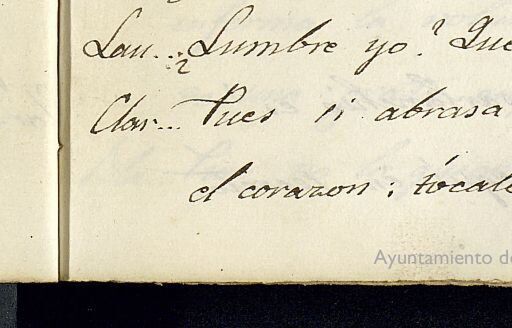 Lau... ¿Lumbre yo? Que
Clar... Pues si abrasa
el corazon; tócale
Ayuntamiento de